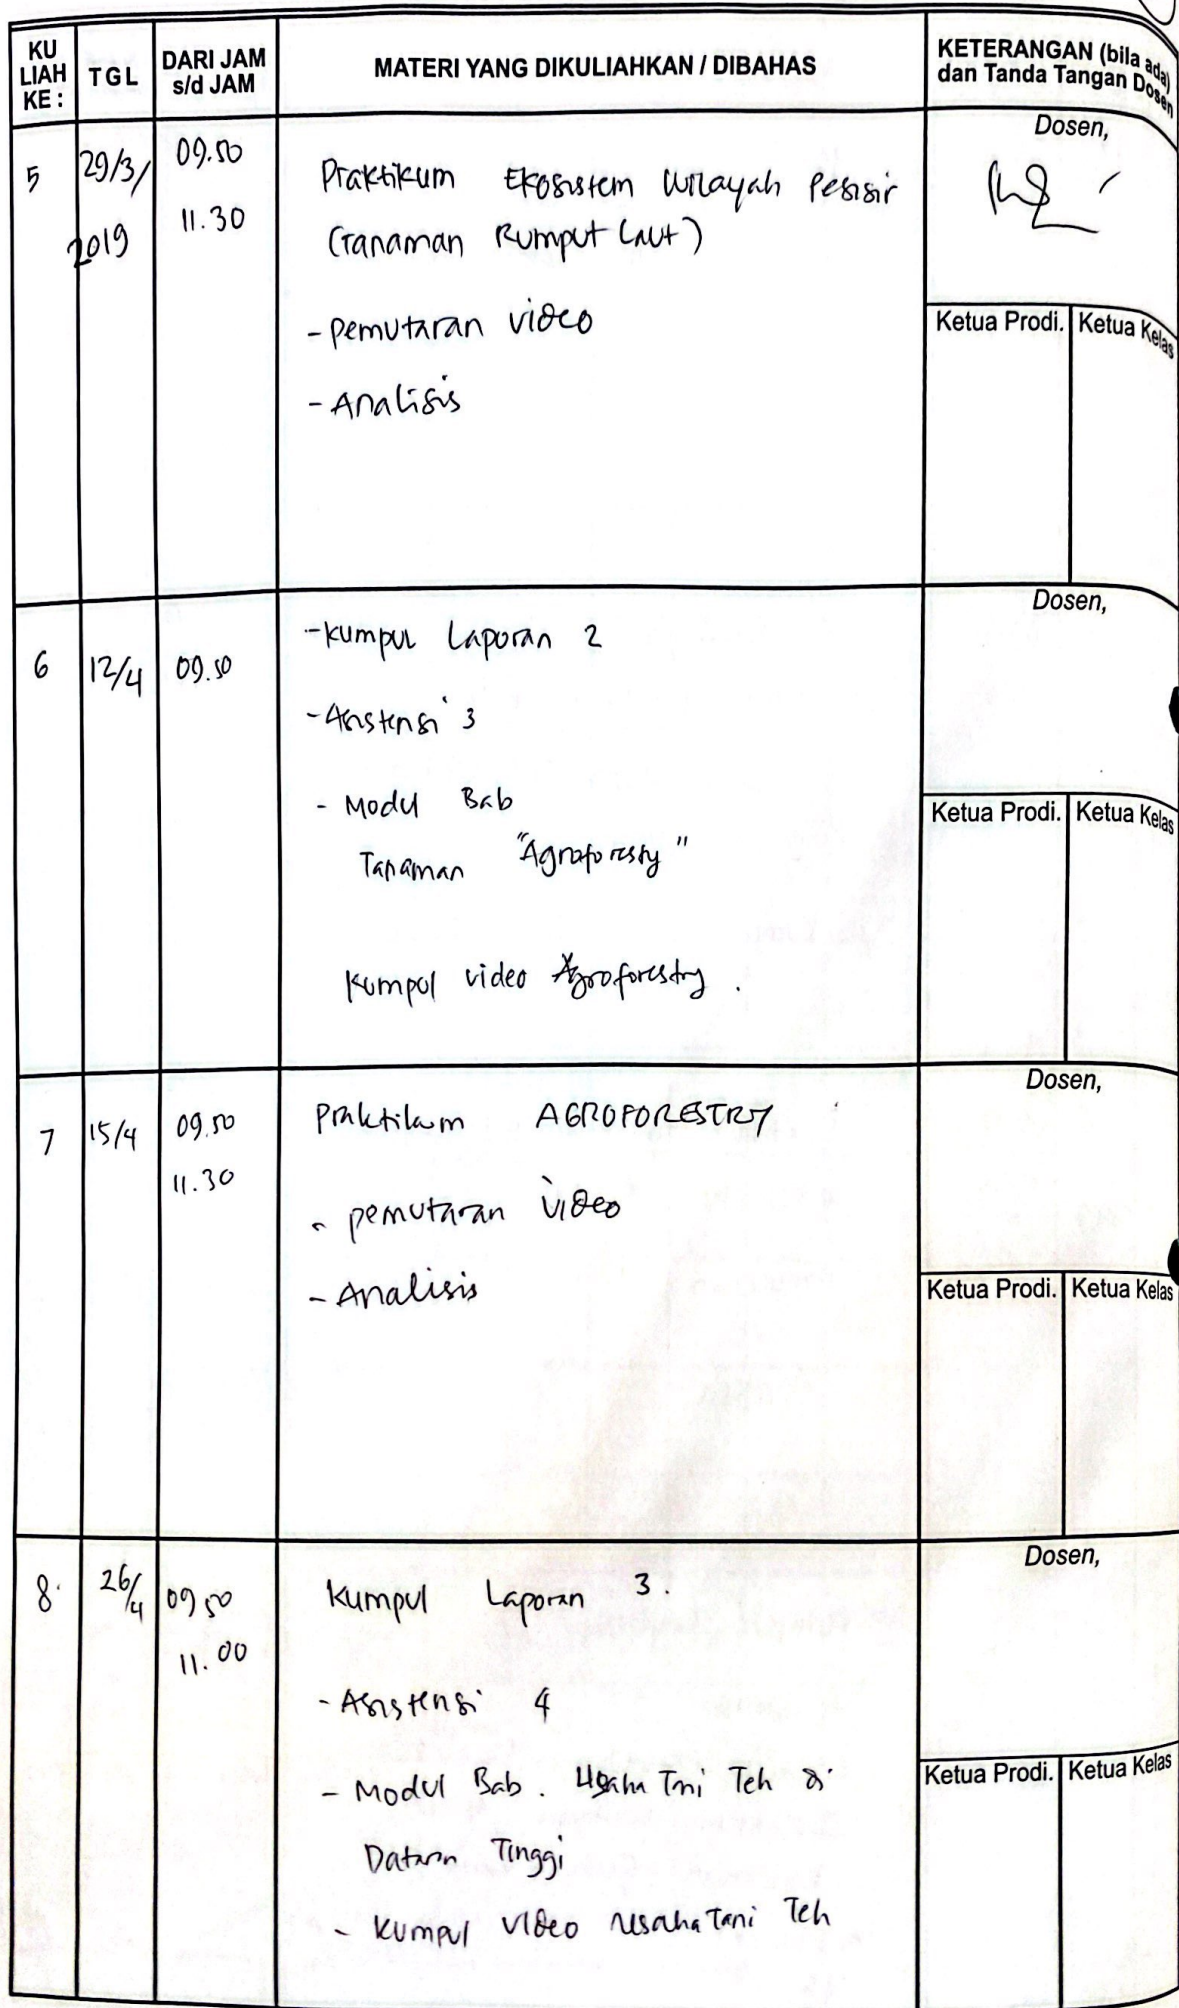 KU LIAH KE :
TGL
DARI JAM s/d JAM
MATERI YANG DIKULIAHKAN / DIBAHAS
KETERANGAN (bila ada) dan Tanda Tangan Dosen
5
29/3/
2019
09.50
11.30
Praktikum Ekosistem Wilayah Pesisir
(Tanaman Rumput Laut)
- Pemutaran video
- Analisis
Dosen,
Ketua Prodi. Ketua Kelas
6
12/4
09.50
- Kumpul Laporan 2
- Asistensi 3
- Modul Bab
Tanaman "Agroforesty"
Kumpul video Agroforestry .
Dosen,
Ketua Prodi. Ketua Kelas
7
15/4
09.50
11.30
Praktikum AGROFORESTRY
- pemutaran video
- Analisis
Dosen,
Ketua Prodi. Ketua Kelas
8.
26/4
09.50
11.00
Kumpul Laporan 3.
- Asistensi 4
- Modul Bab . Usaha Tani Teh di
Dataran Tinggi
- Kumpul Video usaha Tani Teh
Dosen,
Ketua Prodi. Ketua Kelas